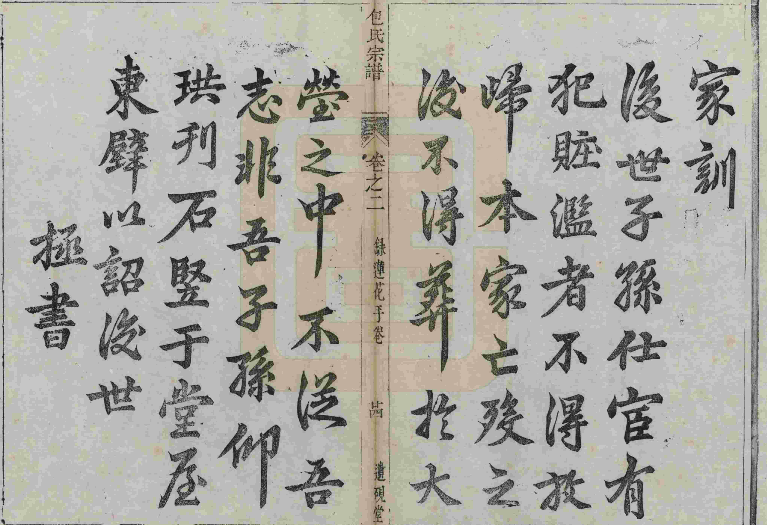 家訓
後世子孫仕宦有
犯賍濫者不得放
歸本家亡殁之
後不得葬於大
包氏宗譜 卷之二 錄蓮花手卷 遺硯堂
塋之中不從吾
志非吾子孫仰
珙刊石竪于堂屋
東壁以詔後世
拯書